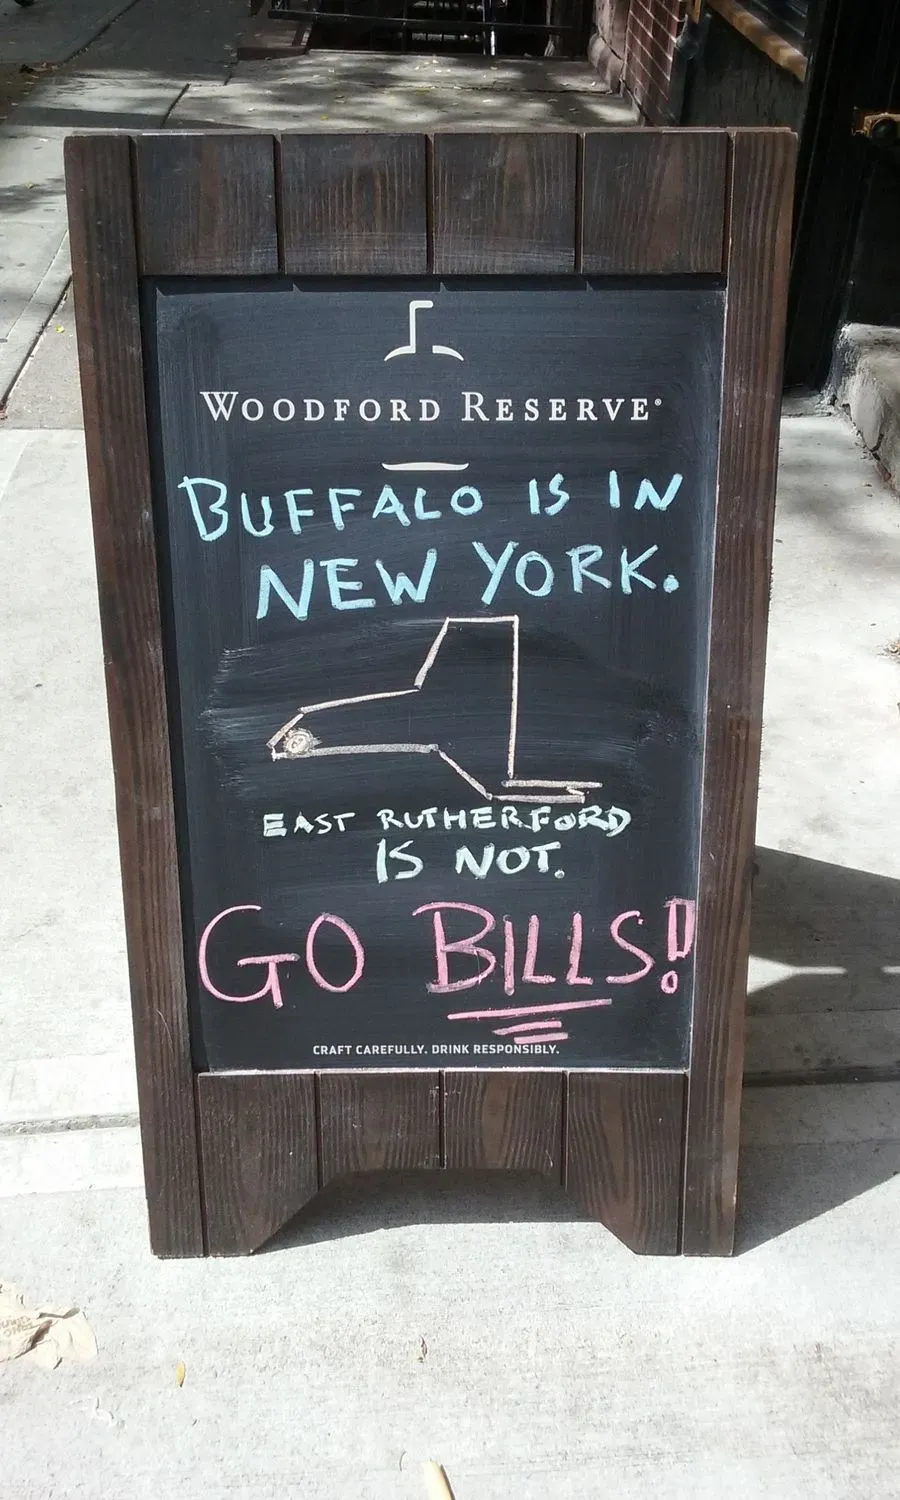 WOODFORD RESERVE®
BUFFALO IS IN
NEW YORK.
EAST RUTHERFORD
IS NOT.
GO BILLS!
CRAFT CAREFULLY. DRINK RESPONSIBLY.